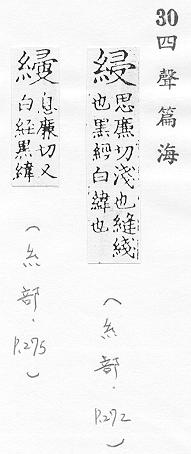 30 四聲篇海
綅
思廉切淺也縫綫
也黑經白緯也
(糸部. P.272)
息廉切又
白經黑緯
(糸部. P.275)